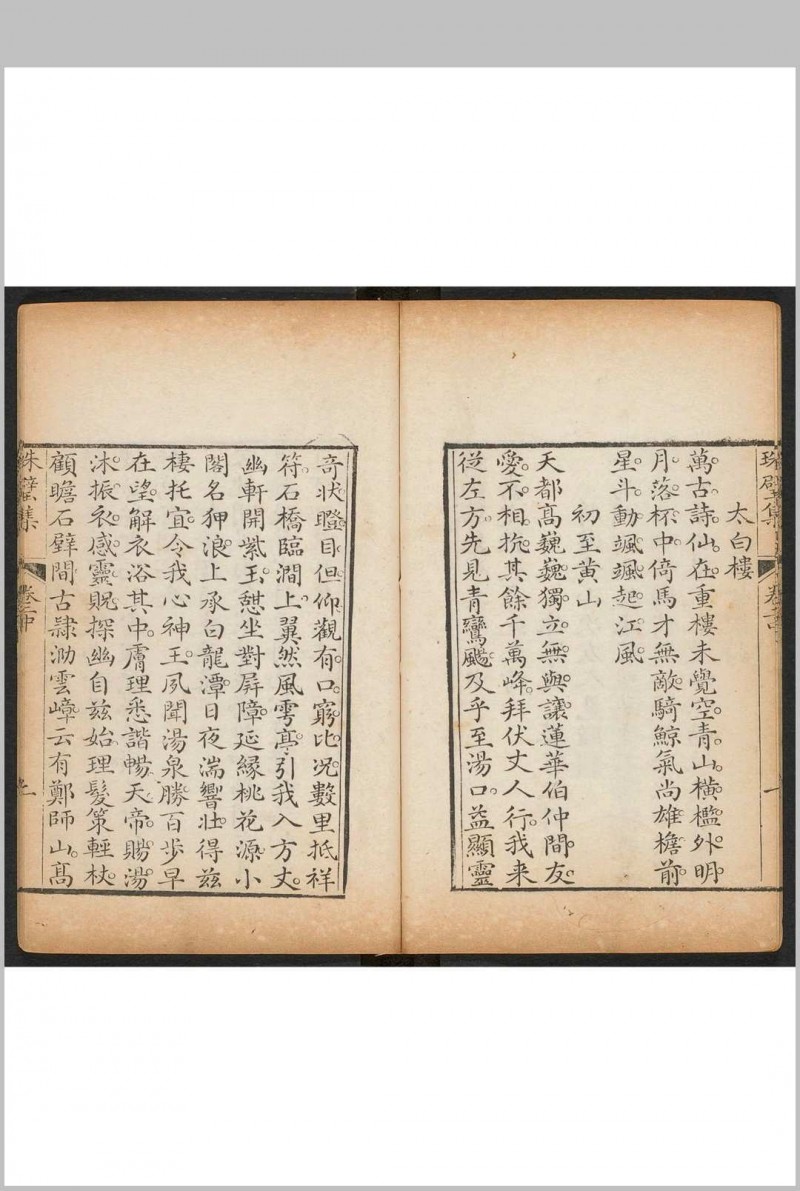 太白樓
萬古詩仙在重樓未覺空青山橫檻外明
月落杯中倚馬才無敵騎鯨氣尚雄檐前
星斗動颯颯起江風
初至黄山
天都高巍巍獨立無與讓蓮華伯仲間友
愛不相抗其餘千萬峰拜伏丈人行我来
從左方先見青鸞颺及乎至湯口益顯靈
奇狀瞪目但仰觀有口窮比况數里抵祥
符石橋臨澗上翼然風雩亭引我入方丈
幽軒開紫玉憇坐對屏障延緣桃花源小
閣名狎浪上承白龍潭日夜湍響壯得兹
棲托宜令我心神王夙聞湯泉勝百步早
在望解衣浴其中膚理悉諧暢天帝賜湯
沐振衣感靈貺探幽自兹始理髮策輕杖
顧瞻石壁間古隸泐雲嶂云有鄭師山高
集
卷二中